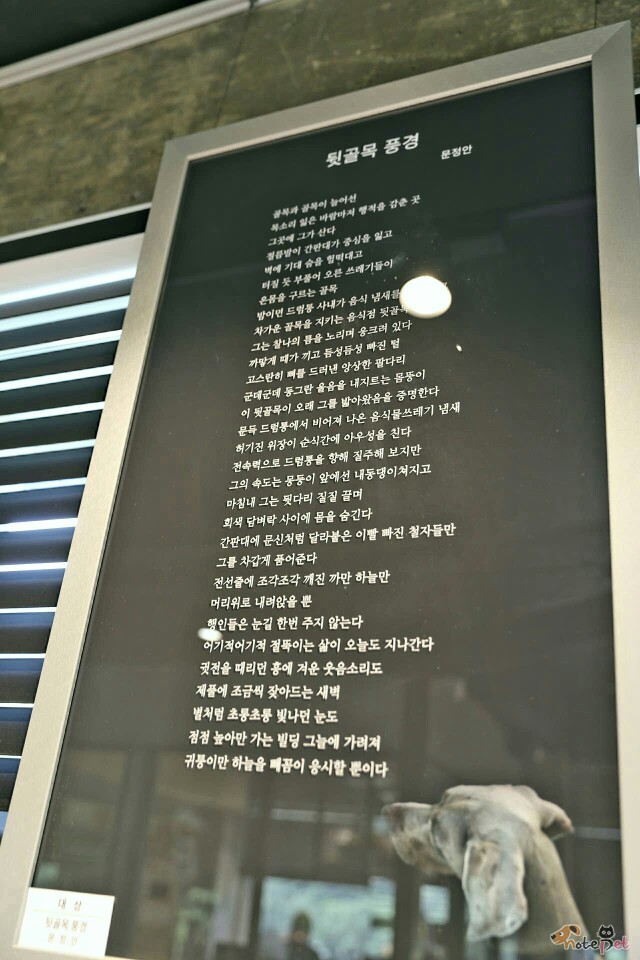 뒷골목 풍경
문정안
골목과 골목이 늘어선
목소리 잃은 바람마저 행적을 감춘 곳
그곳에 그가 산다
절름발이 간판대가 중심을 잃고
벽에 기대 숨을 헐떡대고
터질 듯 부풀어 오른 쓰레기들이
온몸을 구르는 골목
밤이면 드럼통 사내가 음식 냄새를
차가운 골목을 지키는 음식점 뒷골목
그는 찰나의 틈을 노리며 웅크려 있다
까맣게 때가 끼고 듬성듬성 빠진 털
고스란히 뼈를 드러낸 앙상한 팔다리
군데군데 둥그런 울음을 내지르는 몸뚱이
이 뒷골목이 오래 그를 밟아왔음을 증명한다
문득 드럼통에서 비어져 나온 음식물쓰레기 냄새
허기진 위장이 순식간에 아우성을 친다
전속력으로 드럼통을 향해 질주해 보지만
그의 속도는 몽둥이 앞에선 내동댕이쳐지고
마침내 그는 뒷다리 질질 끌며
회색 담벼락 사이에 몸을 숨긴다
간판대에 문신처럼 달라붙은 이빨 빠진 철자들만
그를 차갑게 품어준다
전선줄에 조각조각 깨진 까만 하늘만
머리위로 내려앉을 뿐
행인들은 눈길 한번 주지 않는다
어기적어기적 절뚝이는 삶이 오늘도 지나간다
귓전을 때리던 흥에 겨운 웃음소리도
제풀에 조금씩 잦아드는 새벽
별처럼 초롱초롱 빛나던 눈도
점점 높아만 가는 빌딩 그늘에 가려져
귀퉁이만 하늘을 빼꼼이 응시할 뿐이다
대 상
뒷골목 풍경
문 정 안
notepet